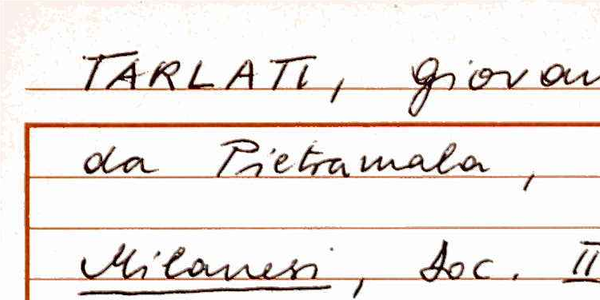 TARLATI, Giovan
da Pietramala,
Milanesi, Doc. II